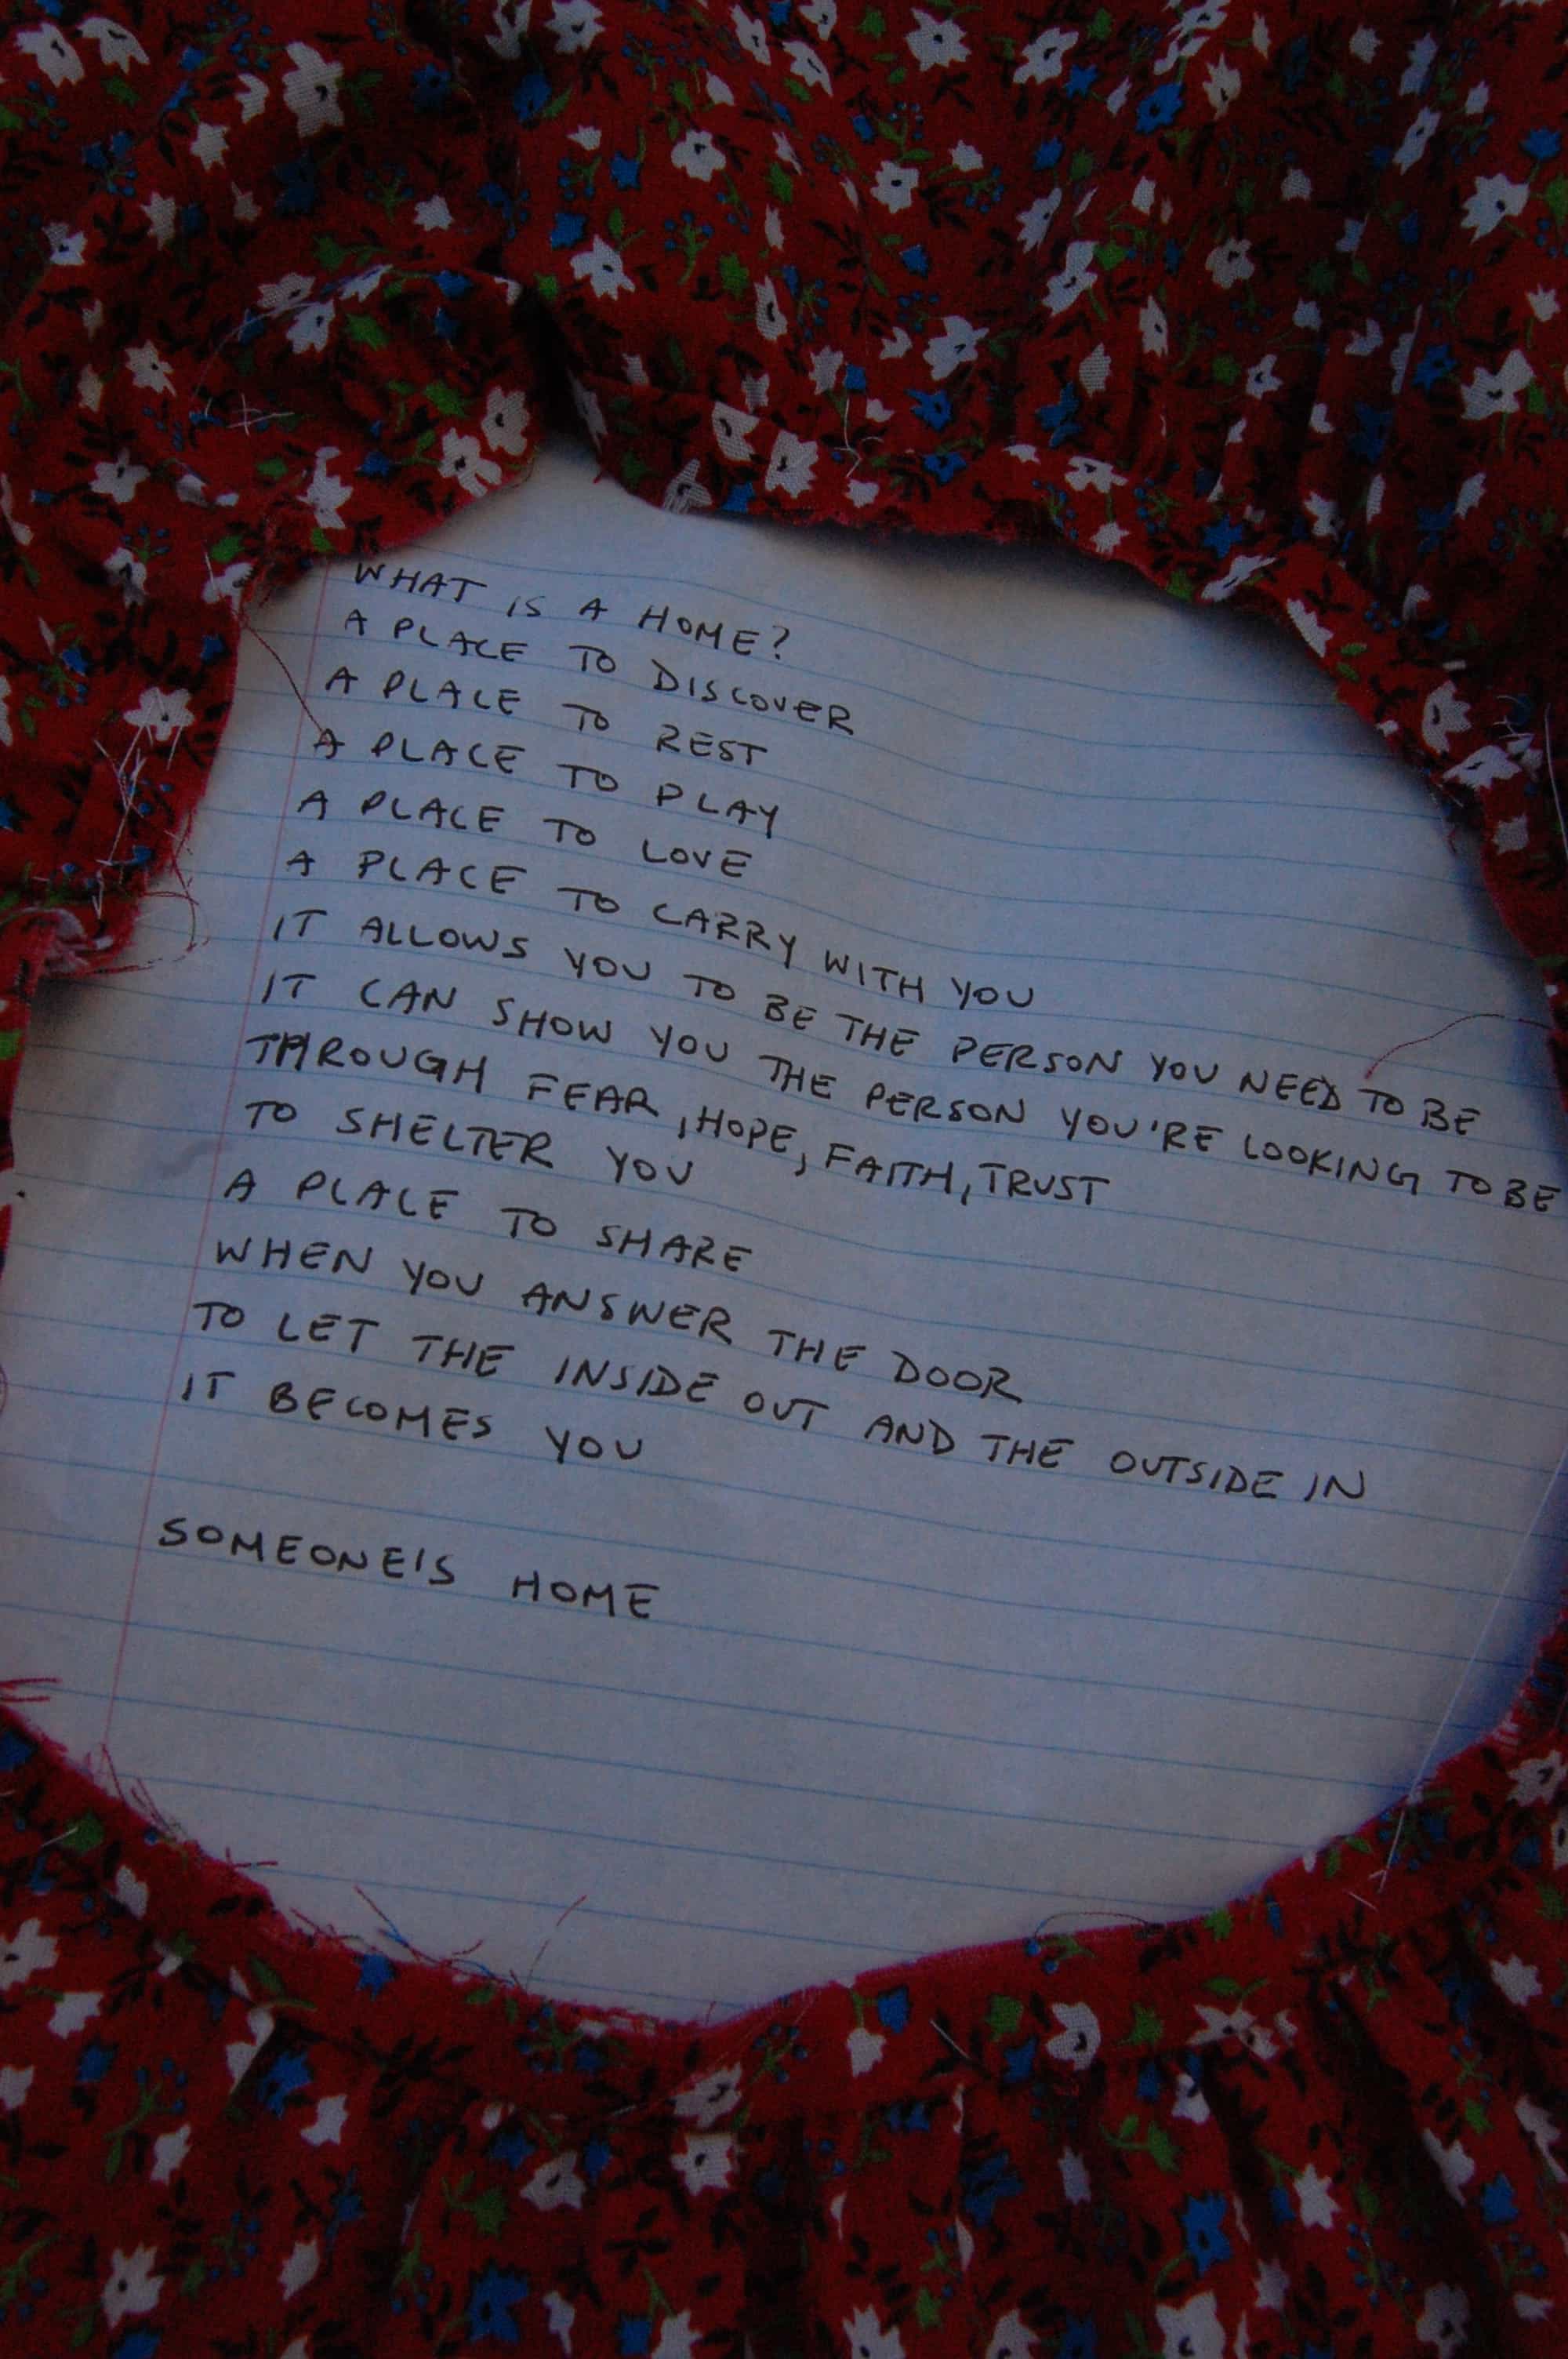 WHAT IS A HOME?
A PLACE TO DISCOVER
A PLACE TO REST
A PLACE TO PLAY
A PLACE TO LOVE
A PLACE TO CARRY WITH YOU
IT ALLOWS YOU TO BE THE PERSON YOU NEED TO BE
IT CAN SHOW YOU THE PERSON YOU'RE LOOKING TO BE
THROUGH FEAR, HOPE, FAITH, TRUST
TO SHELTER YOU
A PLACE TO SHARE
WHEN YOU ANSWER THE DOOR
TO LET THE INSIDE OUT AND THE OUTSIDE IN
IT BECOMES YOU
SOMEONE'S HOME